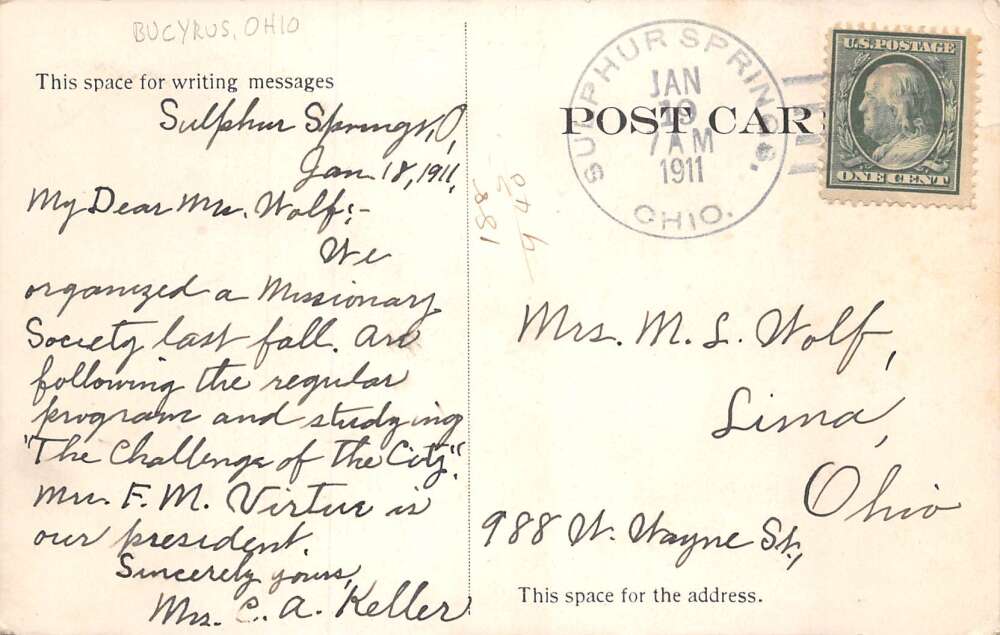 BUCYRUS, OHIO
This space for writing messages
Sulphur Springs, O,
Jan. 18, 1911,
My Dear Mrs. Wolf:-
We
organized a Missionary
Society last fall. Are
following the regular
program and studying
"The Challenge of the City".
Mrs. F. M. Virtue is
our president.
Sincerely yours,
Mrs. C. A. Keller
188
940
POST CAR
SULPHUR SPRINGS,
JAN
19
7 AM
1911
OHIO.
U.S. POSTAGE
ONE CENT
Mrs. M. L. Wolf,
Lima,
Ohio
988 W. Wayne St.,
This space for the address.